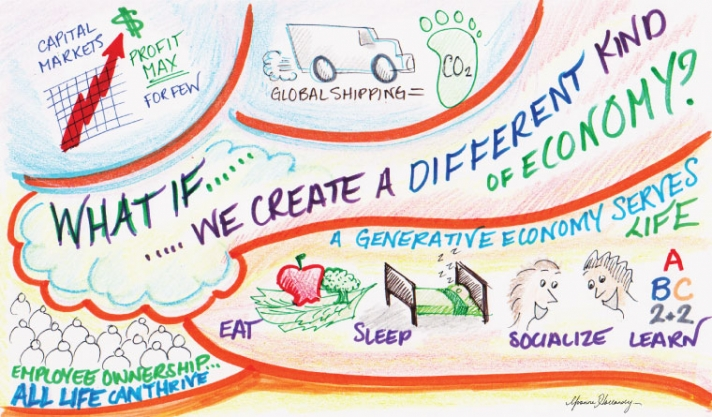 CAPITAL
MARKETS
$
PROFIT
MAX
FOR FEW
GLOBAL SHIPPING =
CO2
WHAT IF......
..... WE CREATE A DIFFERENT KIND
OF ECONOMY?
A GENERATIVE ECONOMY SERVES
LIFE
EAT
z z z z
SLEEP
SOCIALIZE
A
B C
2+2
LEARN
EMPLOYEE OWNERSHIP...
ALL LIFE CAN THRIVE